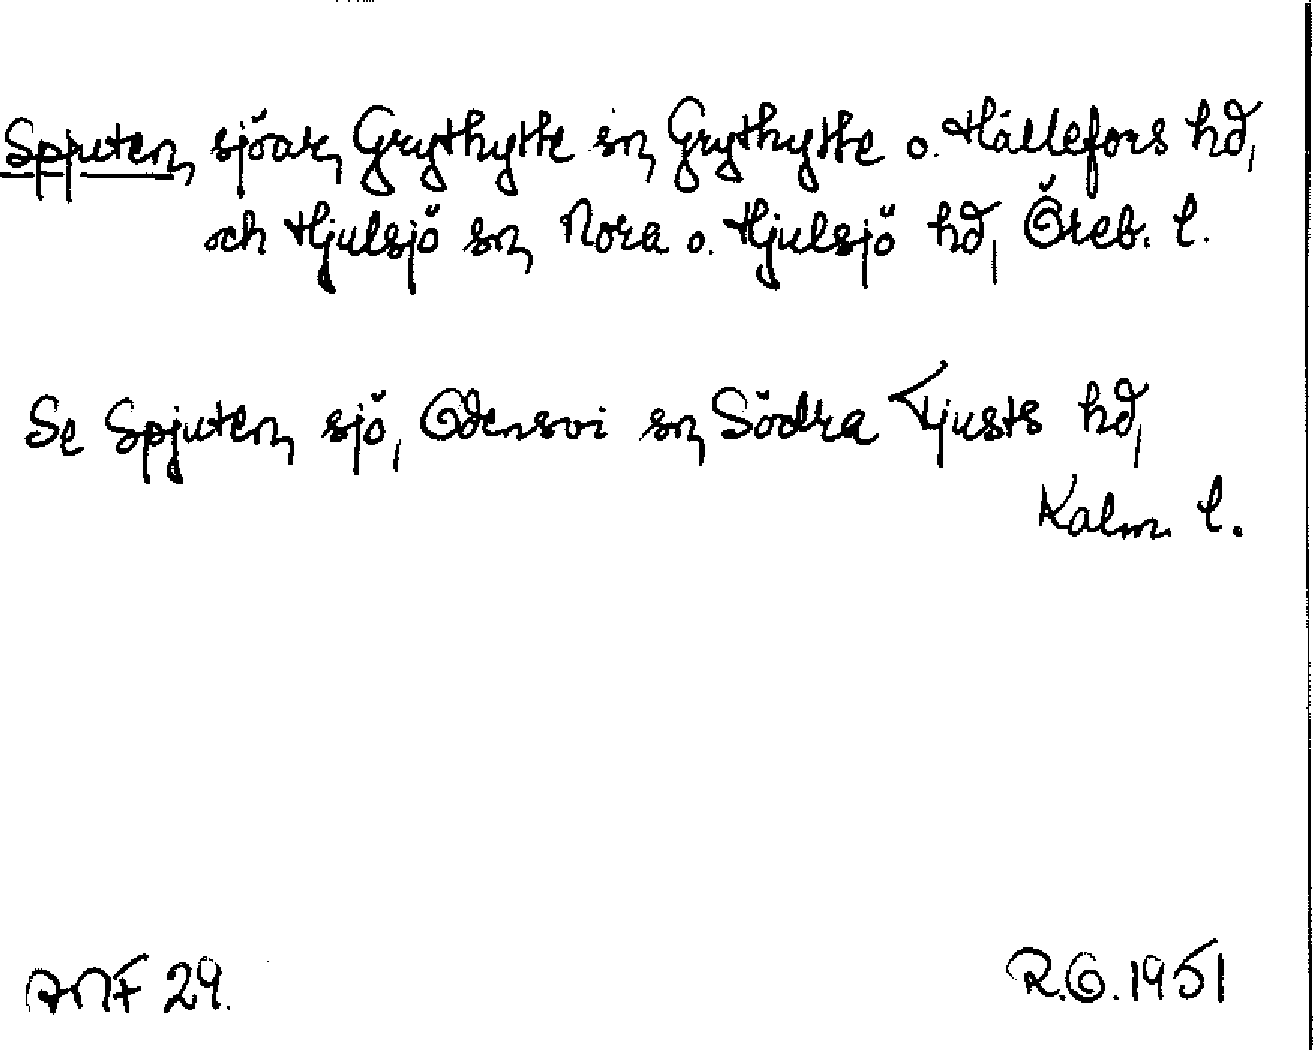 Spjuten, sjöar, Grythytte sn, Grythytte o. Hällefors hd,
och Hjulsjö sn, Nora o. Hjulsjö hd, Öreb. l.
Se Spjuten, sjö, Odensvi sn, Södra Tjusts hd,
Kalm. l.
ANF 29.
R.O. 1951